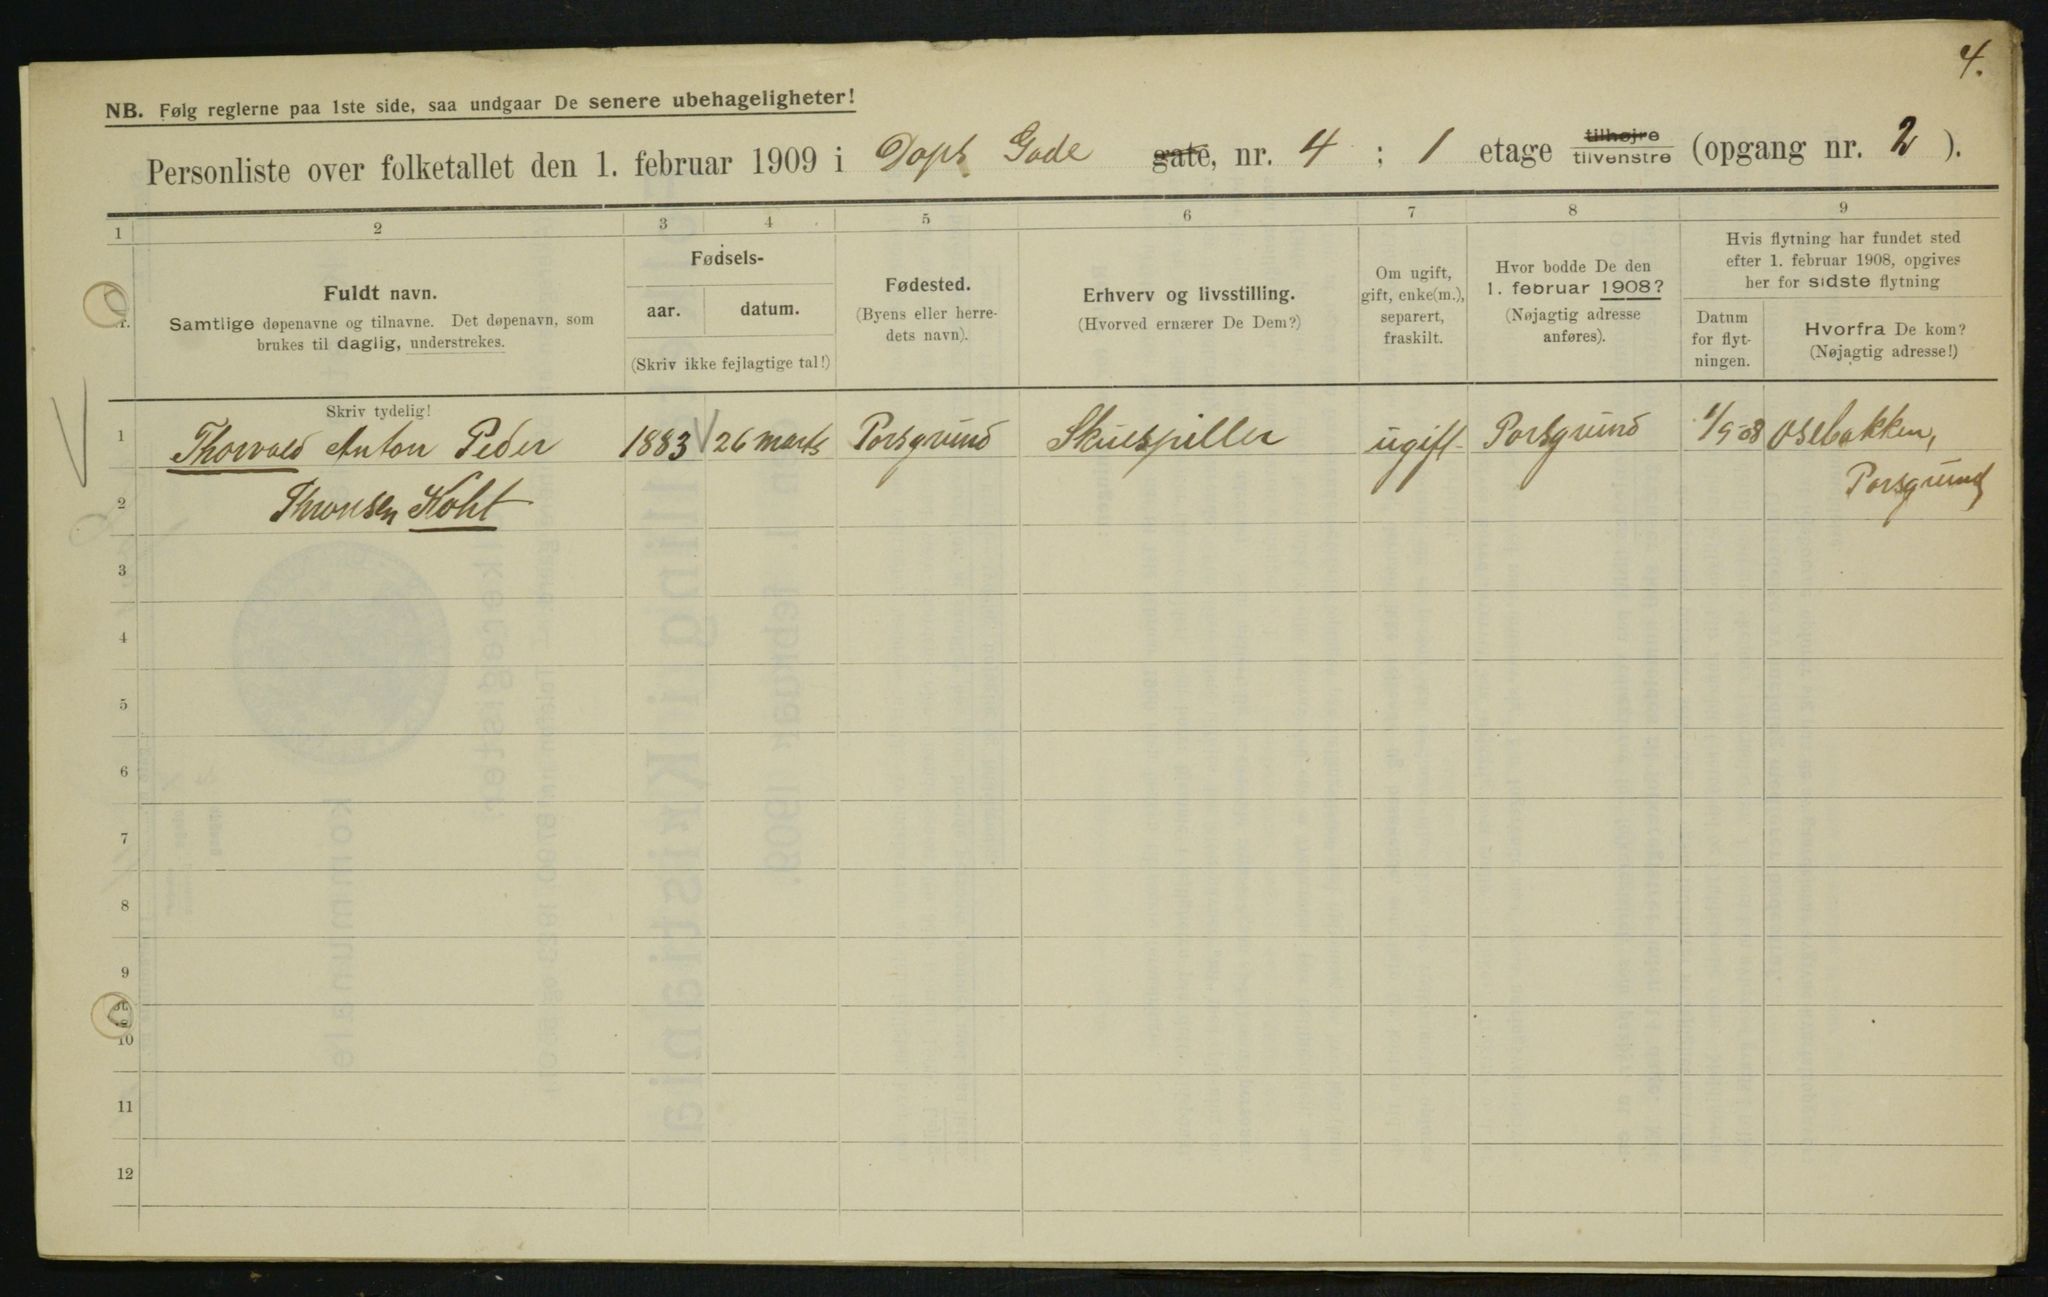 4.
NB. Følg reglerne paa 1ste side, saa undgaar De senere ubehageligheter!
Personliste over folketallet den 1. februar 1909 i Dops Gade gate, nr. 4 ; 1 etage tilhøjre tilvenstre (opgang nr. 2 ).
1 2 3 4 5 6 7 8 9
Nr.
Fuldt navn.
Samtlige døpenavne og tilnavne. Det døpenavn, som
brukes til daglig, understrekes.
Fødsels-
aar. datum.
(Skriv ikke fejlagtige tal!)
Fødested.
(Byens eller herre-
dets navn).
Erhverv og livsstilling.
(Hvorved ernærer De Dem?)
Om ugift,
gift, enke(m.),
separert,
fraskilt.
Hvor bodde De den
1. februar 1908?
(Nøjagtig adresse
anføres).
Hvis flytning har fundet sted
efter 1. februar 1908, opgives
her for sidste flytning
Datum
for flyt-
ningen.
Hvorfra De kom?
(Nøjagtig adresse!)
Skriv tydelig!
1 Thorvald Anton Peder 1883 26 marts Porsgrund Skuespiller ugift Porsgrund 1/9-08 Osebakken,
2 Thronsen Koht Porsgrund
3
4
5
6
7
8
9
10
11
12